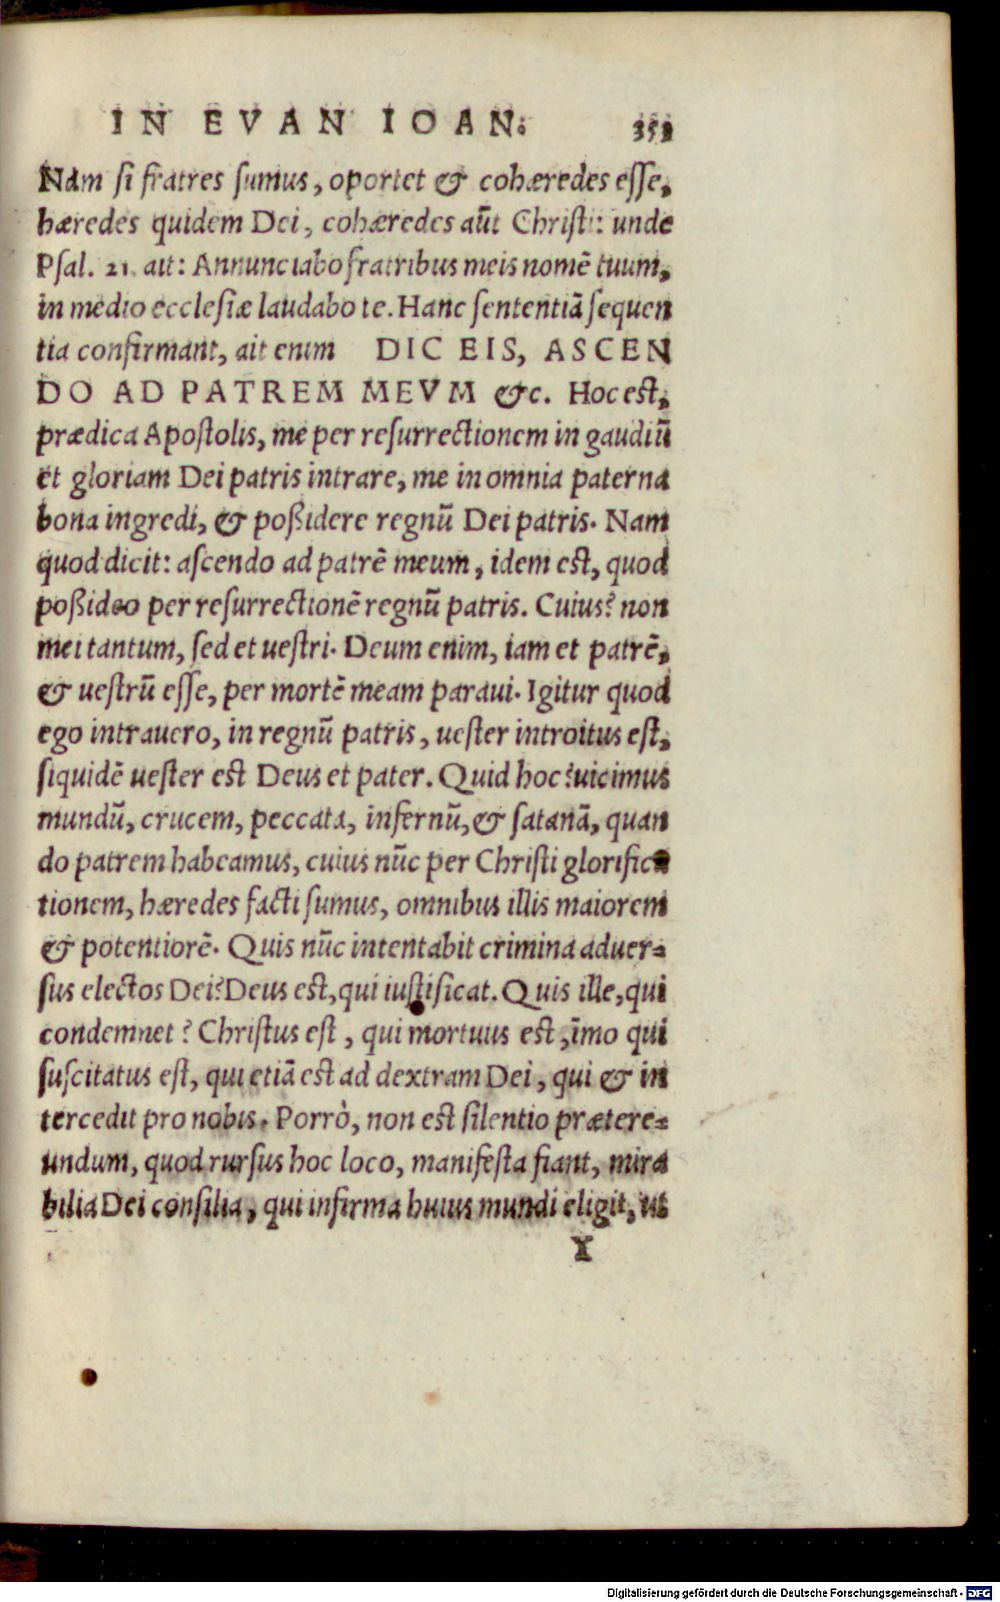 IN EVAN IOAN.
Nam si fratres sumus, oportet & cohæredes esse,
hæredes quidem Dei, cohæredes aūt Christi: unde
Psal. 21. ait: Annunciabo fratribus meis nomē tuum,
in medio ecclesiæ laudabo te. Hanc sententiā sequen
tia confirmant, ait enim DIC EIS, ASCEN
DO AD PATREM MEVM &c. Hoc est,
prædica Apostolis, me per resurrectionem in gaudiū
et gloriam Dei patris intrare, me in omnia paterna
bona ingredi, & poßidere regnū Dei patris. Nam
quod dicit: ascendo ad patrē meum, idem est, quod
poßideo per resurrectionē regnū patris. Cuius? non
mei tantum, sed et uestri. Deum enim, iam et patrē,
& uestrū esse, per mortē meam paraui. Igitur quod
ego intrauero, in regnū patris, uester introitus est,
siquidē uester est Deus et pater. Quid hoc? uicimus
mundū, crucem, peccata, infernū, & satanā, quan
do patrem habeamus, cuius nūc per Christi glorifica
tionem, hæredes facti sumus, omnibus illis maiorem
& potentiorē. Quis nūc intentabit crimina aduer=
sus electos Dei? Deus est, qui iustificat. Quis ille, qui
condemnet? Christus est, qui mortuus est, īmo qui
suscitatus est, qui etiā est ad dextram Dei, qui & in
tercedit pro nobis. Porrò, non est silentio prætere=
undum, quod rursus hoc loco, manifesta fiant, mira
bilia Dei consilia, qui infirma huius mundi eligit, ut
Y
Digitalisierung gefördert durch die Deutsche Forschungsgemeinschaft - DFG